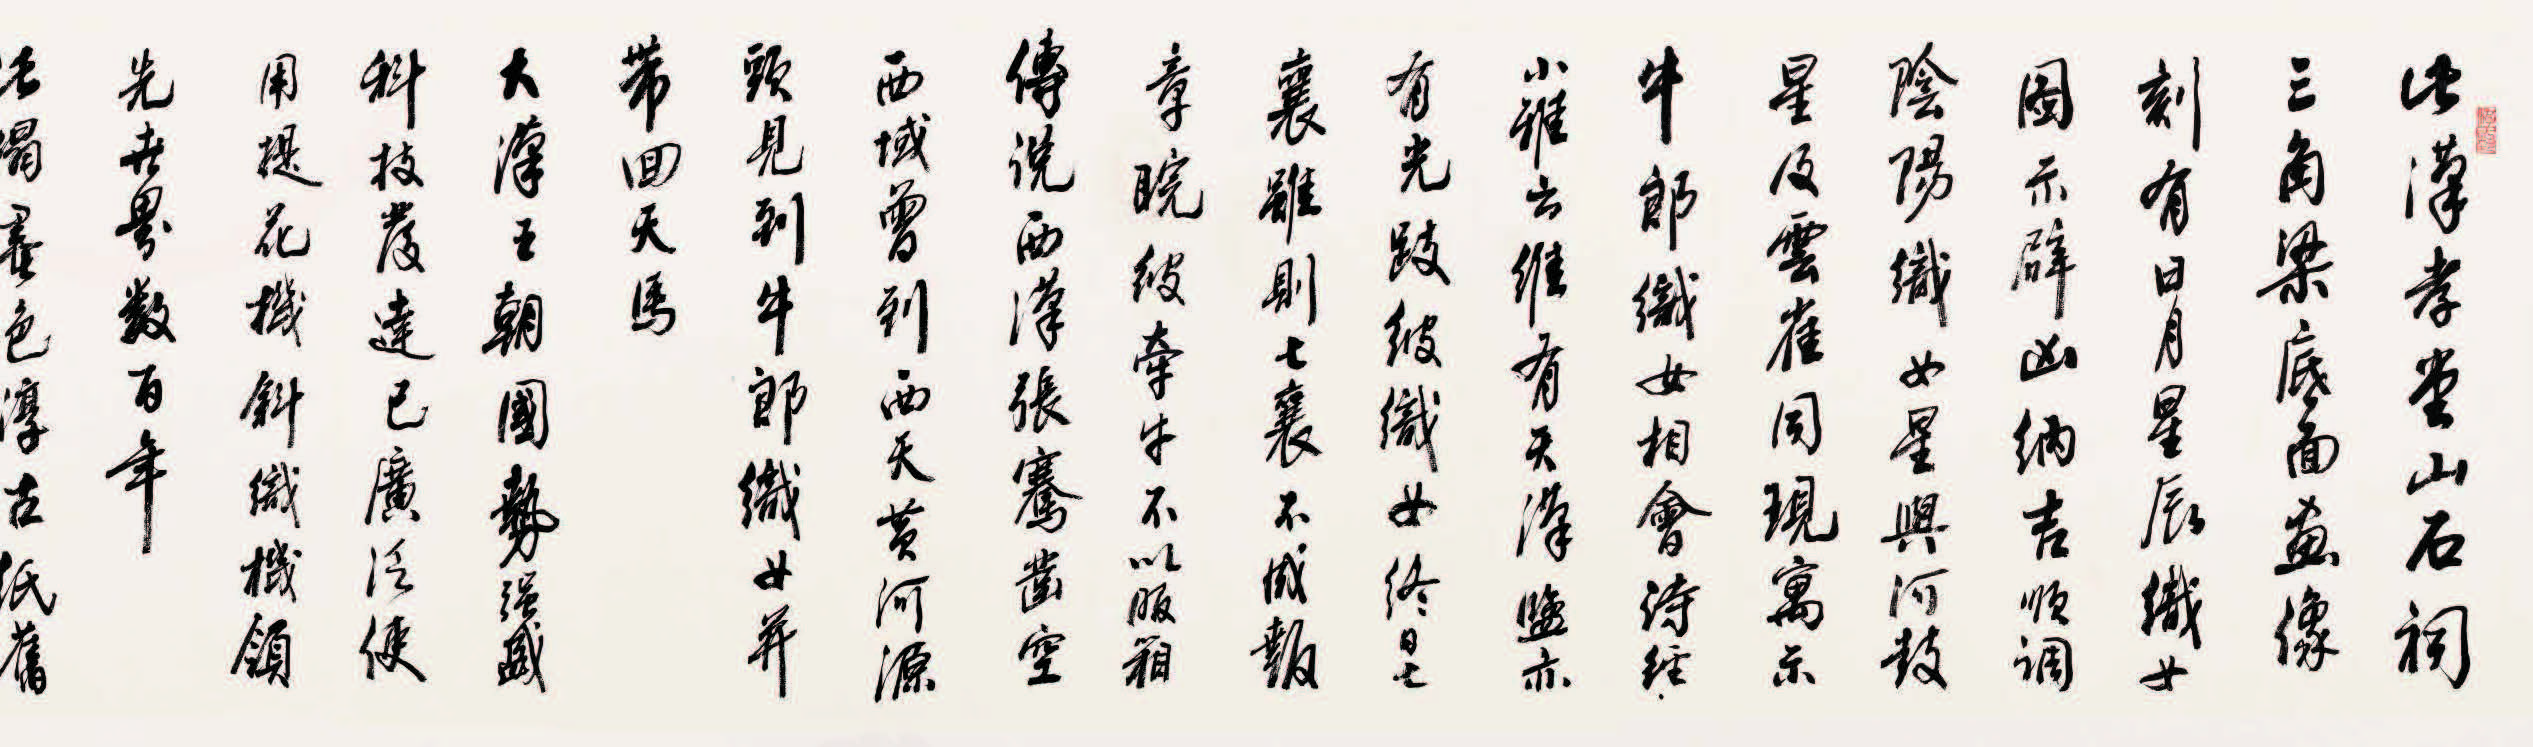 此漢孝堂山石祠
三角梁底面畫像
刻有日月星辰織女
圖示辟凶納吉順調
陰陽織女星與河鼓
星及雲雀同現寓示
牛郎織女相會詩經
小雅云維有天漢監亦
有光跂彼織女終日七
襄雖則七襄不成報
章睆彼牽牛不以服箱
傳说西漢張騫凿空
西域曾到西天黄河源
頭見到牛郎織女并
带回天馬
大漢王朝國勢强盛
科技發達已廣泛使
用提花機斜織機領
先世界数百年
此搨墨色淳古紙舊